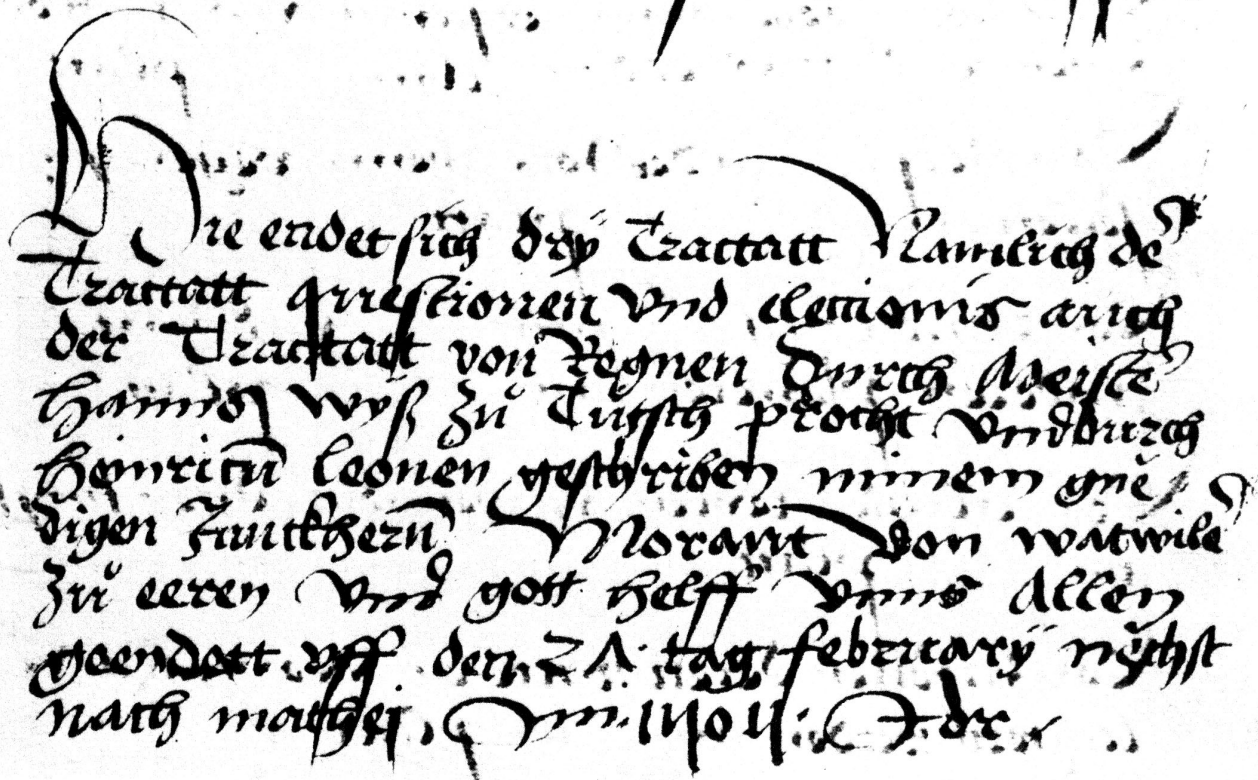 Hie endet sich dry Tractatt Namlich de
Tractatt questionen vnd electionis auch
der Tractatt von Regnen Durch Meiste
Hannß wyß zů Tütsch procht vnd durch
heinricū leonen geschriben minem gne
digen Junckherñ Morant von watwile
zů eeren vnd gott helff vnns Allen
geendett vff den tag february nechst
nach mathej